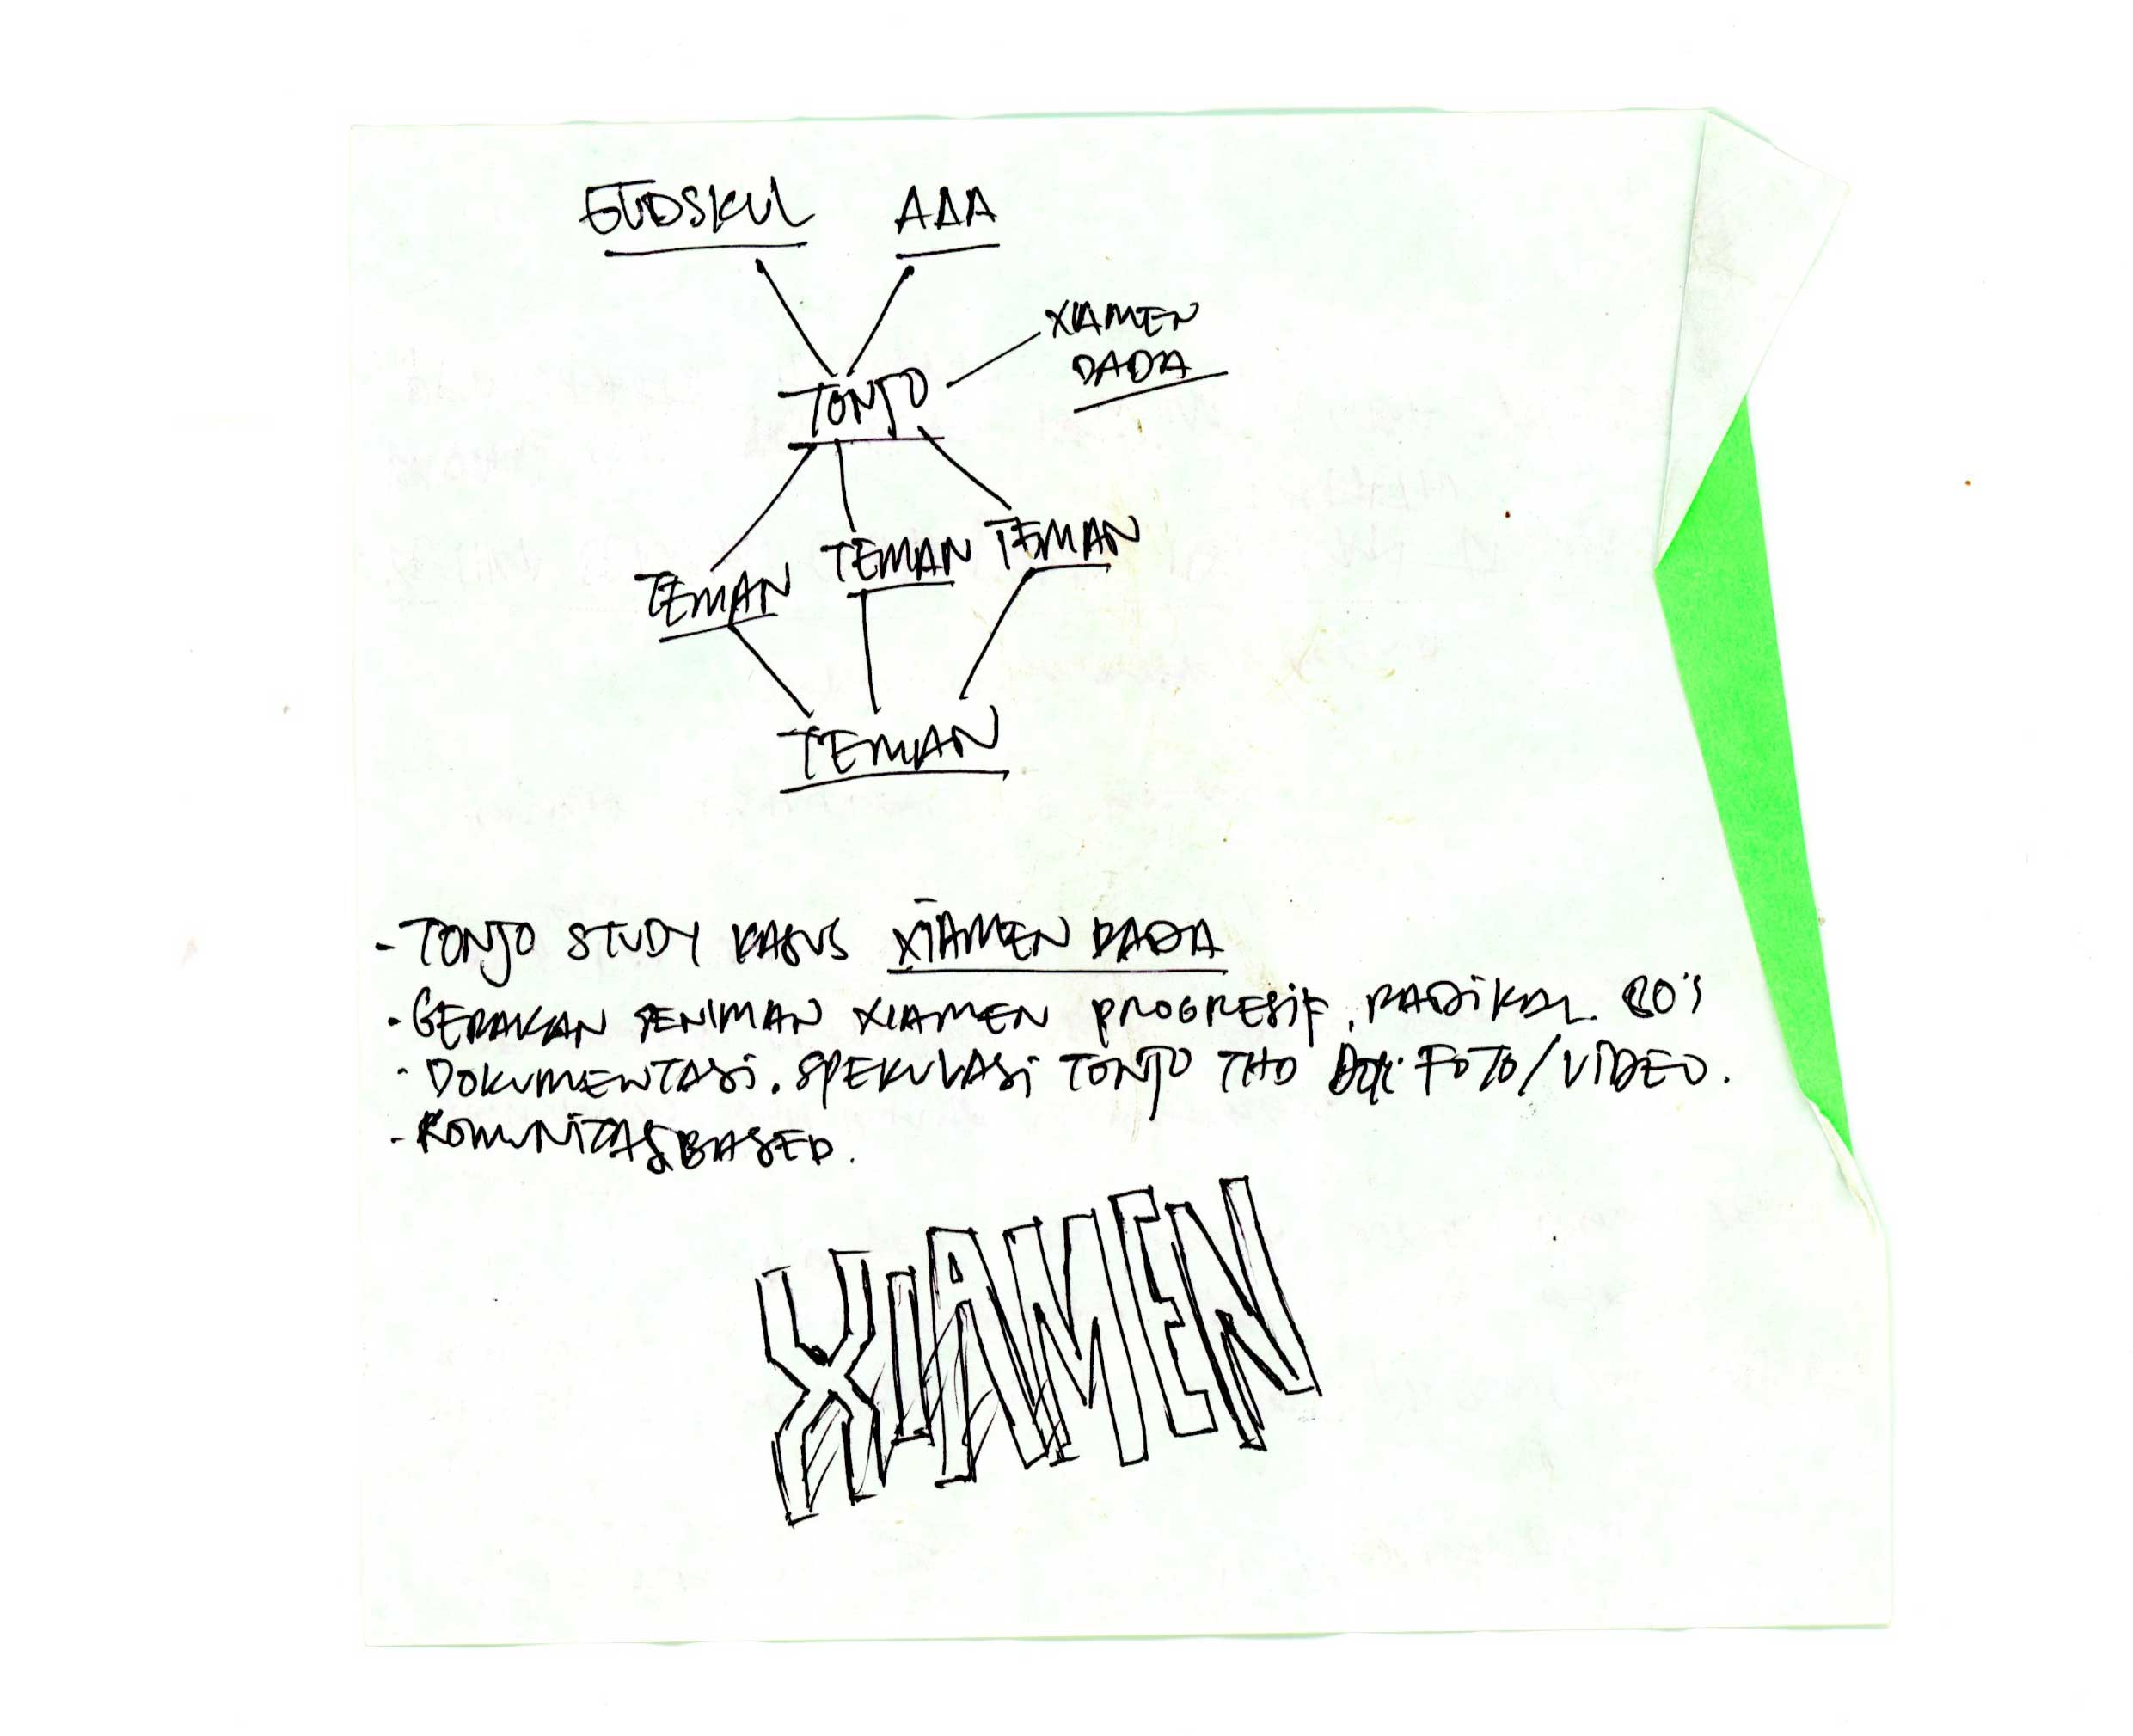 GUDSKUL AAA
XIAMEN
DADA
TONJO
TEMAN TEMAN TEMAN
TEMAN
- TONJO STUDY KASUS XIAMEN DADA
- GERAKAN SENIMAN XIAMEN PROGRESIF, RADIKAL. 80'S
- DOKUMENTASI. SPEKULASI TONJO THD FOTO/VIDEO.
- KOMUNITAS BASED.
XIAMEN